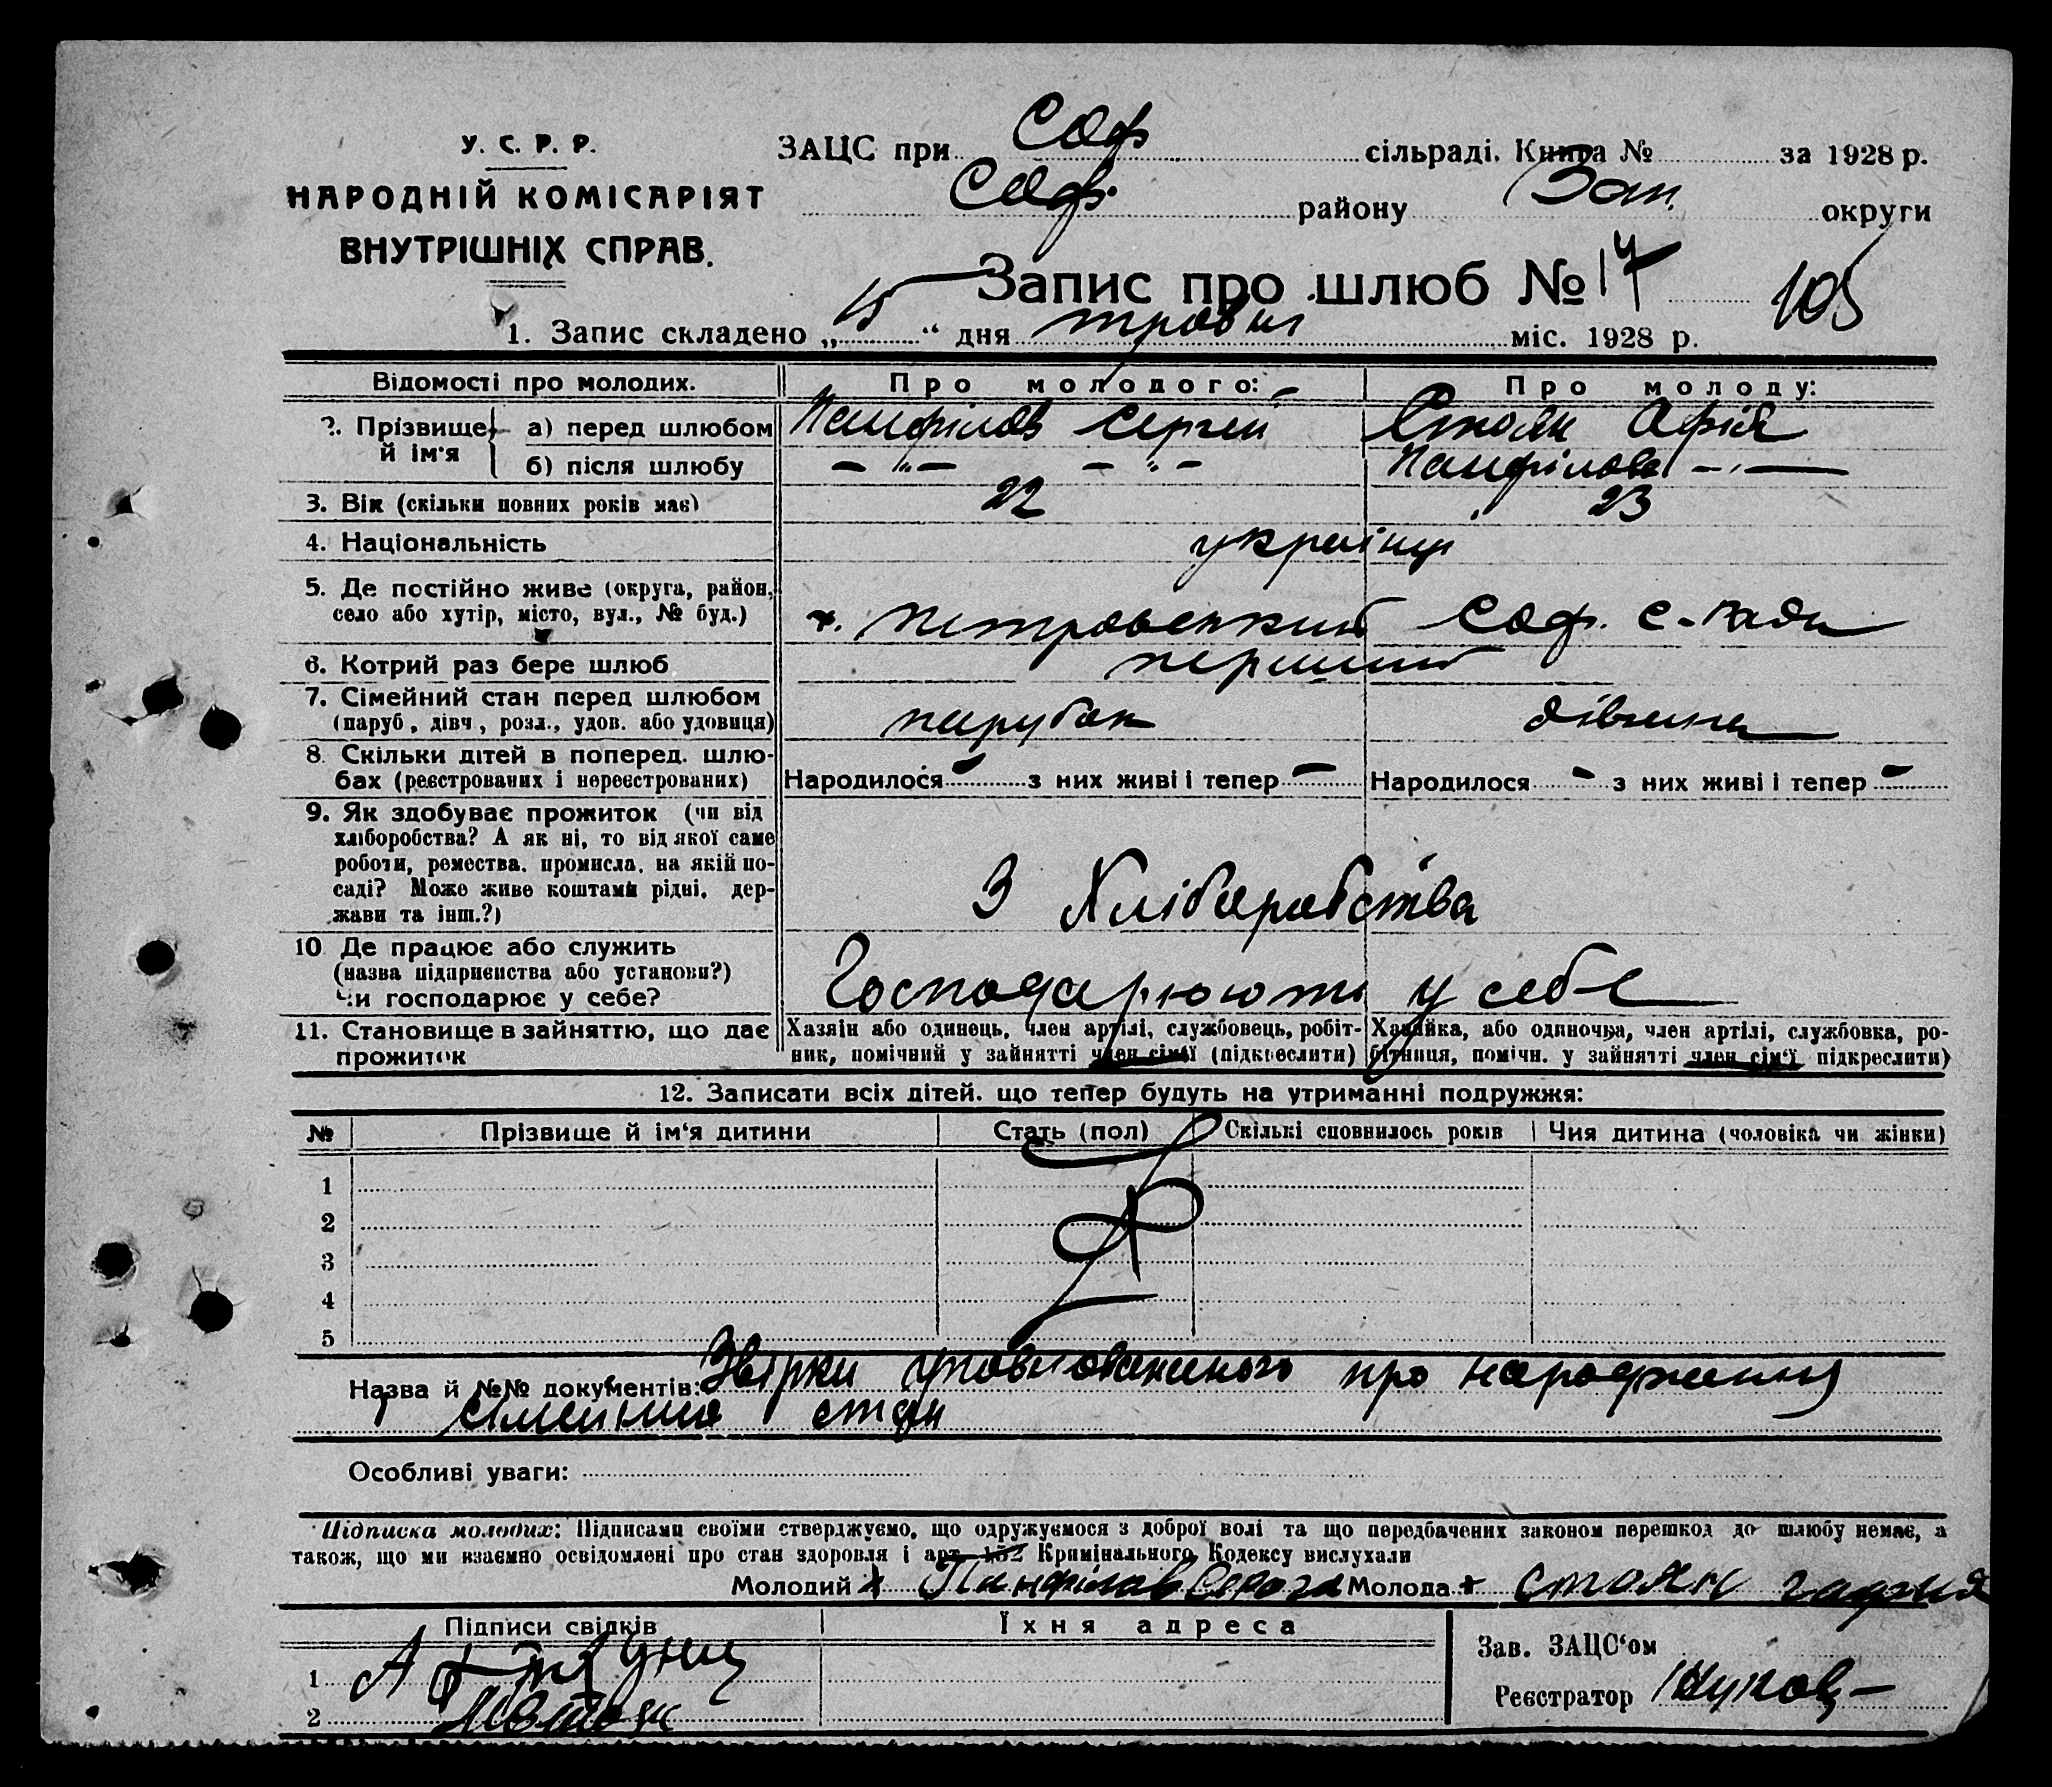 У. С. Р. Р.
НАРОДНІЙ КОМІСАРІЯТ
ВНУТРІШНІХ СПРАВ.
ЗАЦС при Соф сільраді. Книга № за 1928 р.
Соф. району Зап. округи
Запис про шлюб № 17 105
1. Запис складено „15“ дня травня міс. 1928 р.
Відомості про молодих. Про молодого: Про молоду:
2. Прізвище й ім'я а) перед шлюбом Панфілов Сергей Стоян Афія
б) після шлюбу — „ — — „ — Панфілова — „ —
3. Вік (скільки повних років має) 22 23
4. Національність українці
5. Де постійно живе (округа, район, село або хутір, місто, вул., № буд.) х. Петровский Соф. с-ради
6. Котрий раз бере шлюб перший
7. Сімейний стан перед шлюбом (паруб., дівч., розл., удов. або удовиця) парубок дівчина
8. Скільки дітей в поперед. шлюбах (реєстрованих і нереєстрованих) Народилося - з них живі і тепер - Народилося - з них живі і тепер -
9. Як здобуває прожиток (чи від
хліборобства? А як ні, то від якої саме
роботи, ремества, промисла, на якій по-
саді? Може живе коштами рідні, дер-
жави та інш.?)
З Хліборобства
10 Де працює або служить
(назва підприємства або установи?)
Чи господарює у себе?
Господарюють у себе
11. Становище в зайняттю, що дає прожиток
Хазяін або одинець, член артілі, службовець, робіт-
ник, помічний у зайнятті член сімї (підкреслити)
Хазяйка, або одиночка, член артілі, службовка, ро-
бітниця, помічн. у зайнятті член сім'ї підкреслити)
12. Записати всіх дітей, що тепер будуть на утриманні подружжя:
№ Прізвище й ім'я дитини Стать (пол) Скількі сповнилось років Чия дитина (чоловіка чи жінки)
1
2
3
4
5
Назва й №№ документів: Звірки уповноваженого про народження
і сімейний стан
Особливі уваги:
Підписка молодих: Підписами своїми стверджуємо, що одружуємося з доброї волі та що передбачених законом перешкод до шлюбу немає, а
також, що ми взаємно освідомлені про стан здоровля і арт. 152 Кримінального Кодексу вислухали
Молодий х Панфілов Серога Молода + Стоян
Підписи свідків Їхня адреса
1
2
Зав. ЗАЦС'ом
Реєстратор